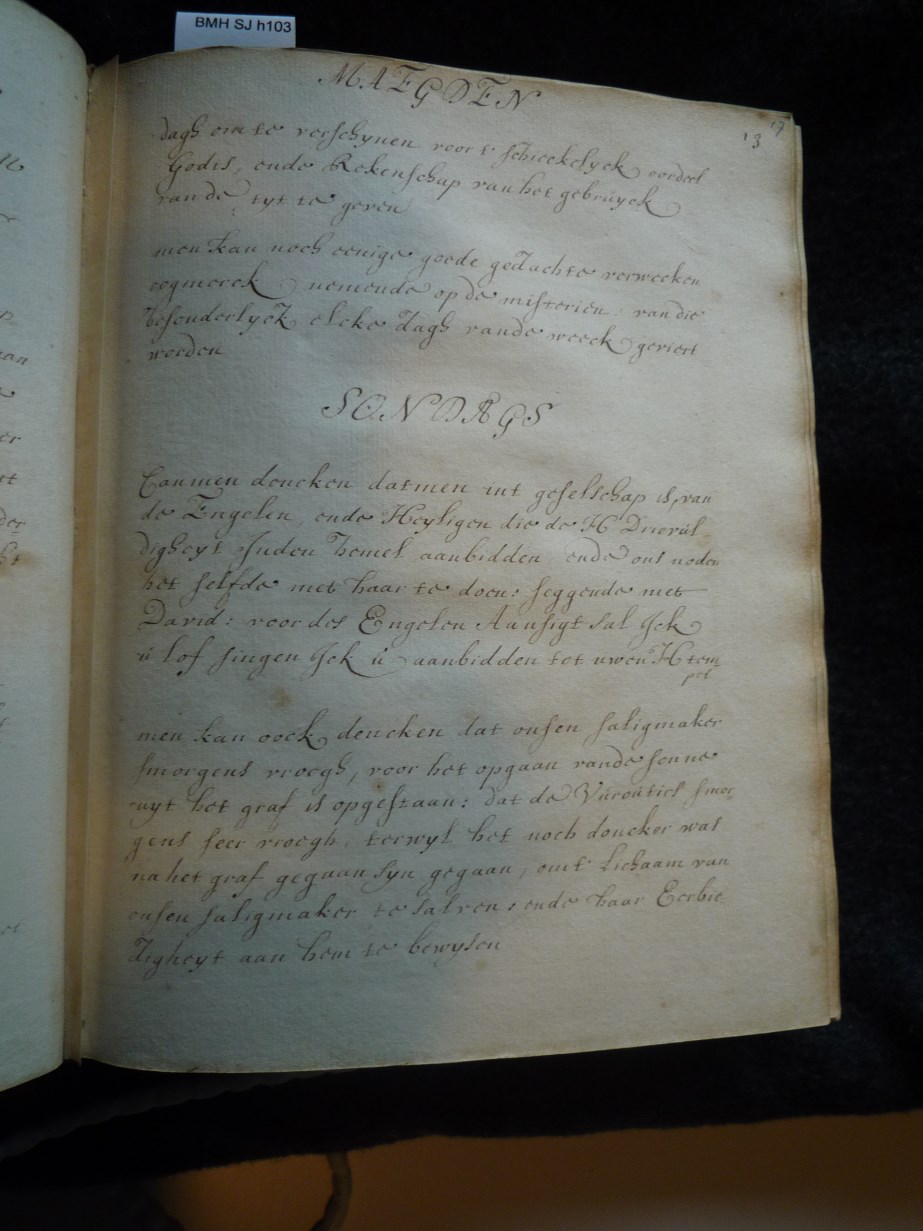 BMH SJ h103
MAEGDEN
13 17
dagh om te verschynen voor t' schieckelyck oordeel
Godts, ende Rekenschap van het gebruyck
van de tyt te geven
men kan noch eenige goede gedachte verwecken
oogmerck nemende op de misterien: van die
besonderlyck elcke dagh vande weeck geviert
worden
SONDAGS
Canmen dencken datmen int geselschap is, van
de Engelen, ende Heyligen die de H Drievùl
digheyt Inden hemel aanbidden ende ons noden
het selfde met haar te doen: seggende met
David: voor des Engelen Aansigt sal Jck
ù lof singen Jck ù aanbidden tot uwen H tem
pel
men kan oock dencken dat onsen saligmaker
smorgens vroegh, voor het opgaan vande sonne
uyt het graf is opgestaan: dat de Vùroùties smor
gens seer vroegh, terwyl het noch doncker was
na het graf gegaan syn gegaan, omt' lichaam van
onsen saligmaker te salven: ende haar Eerbie
digheyt aan hem te bewysen